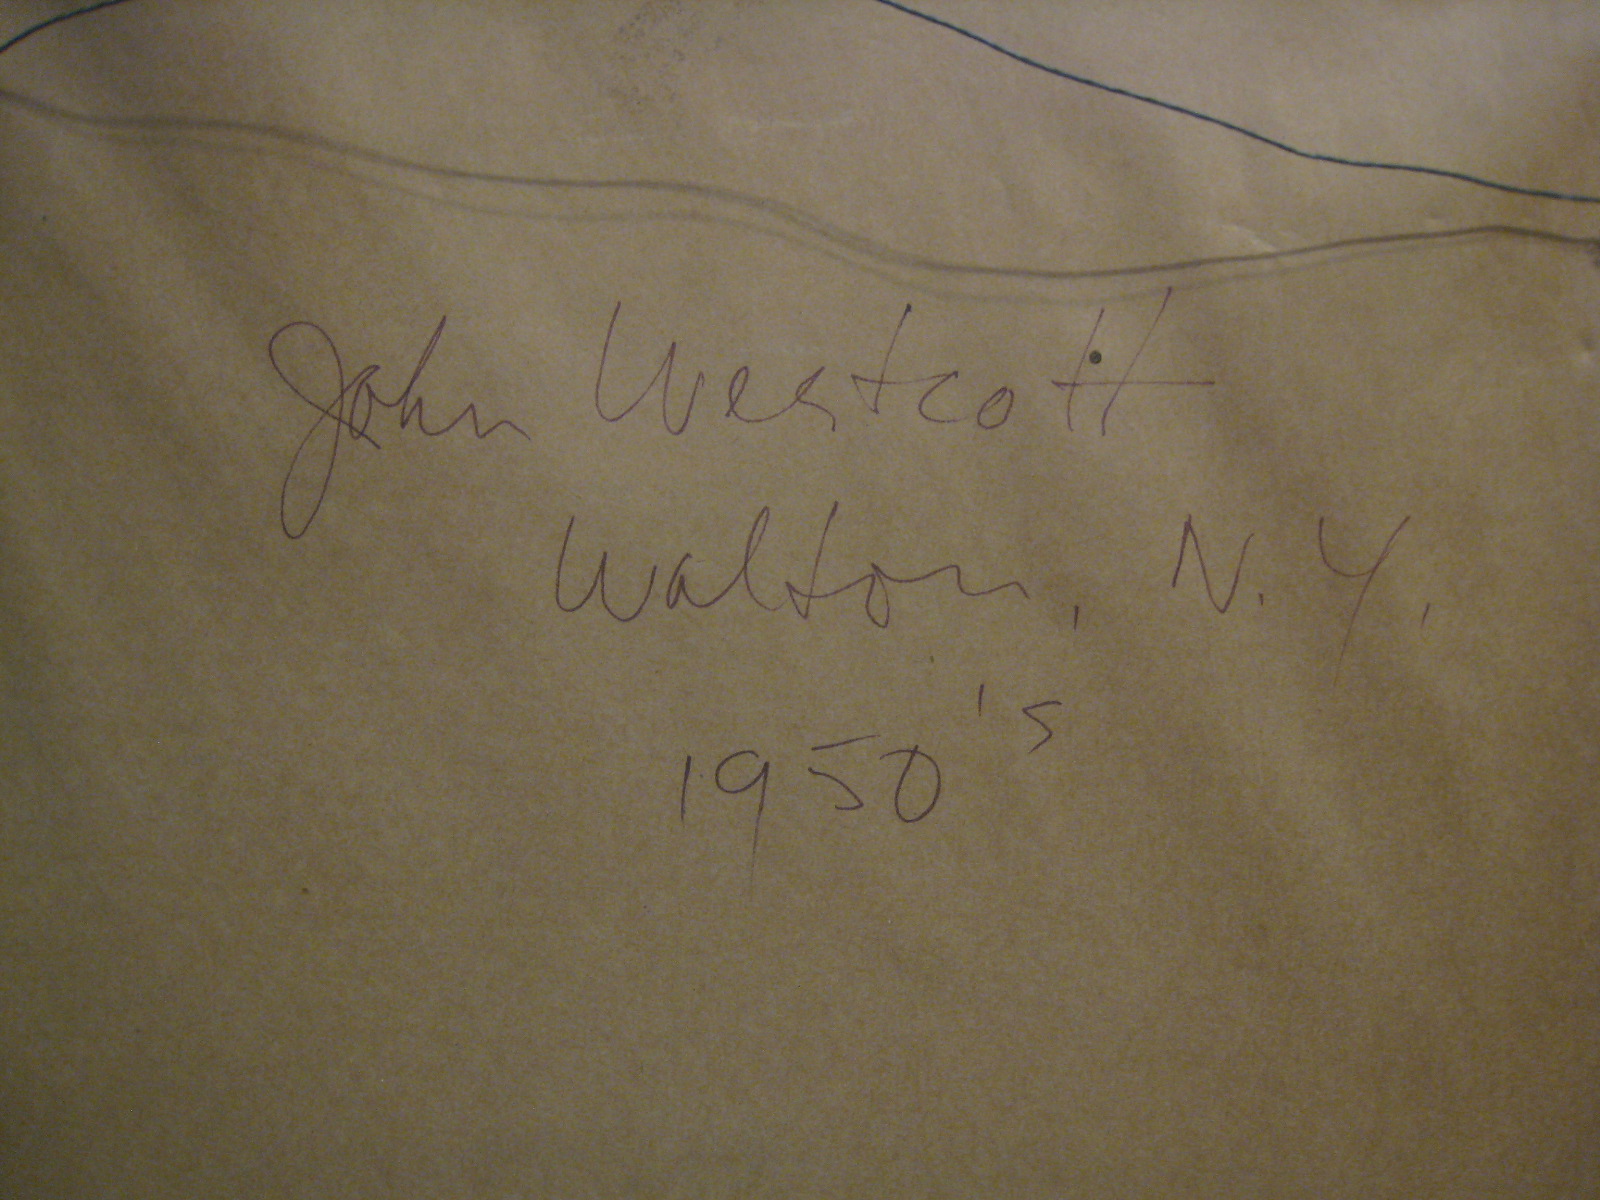 John Westcott
Walton, N.Y.
1950's